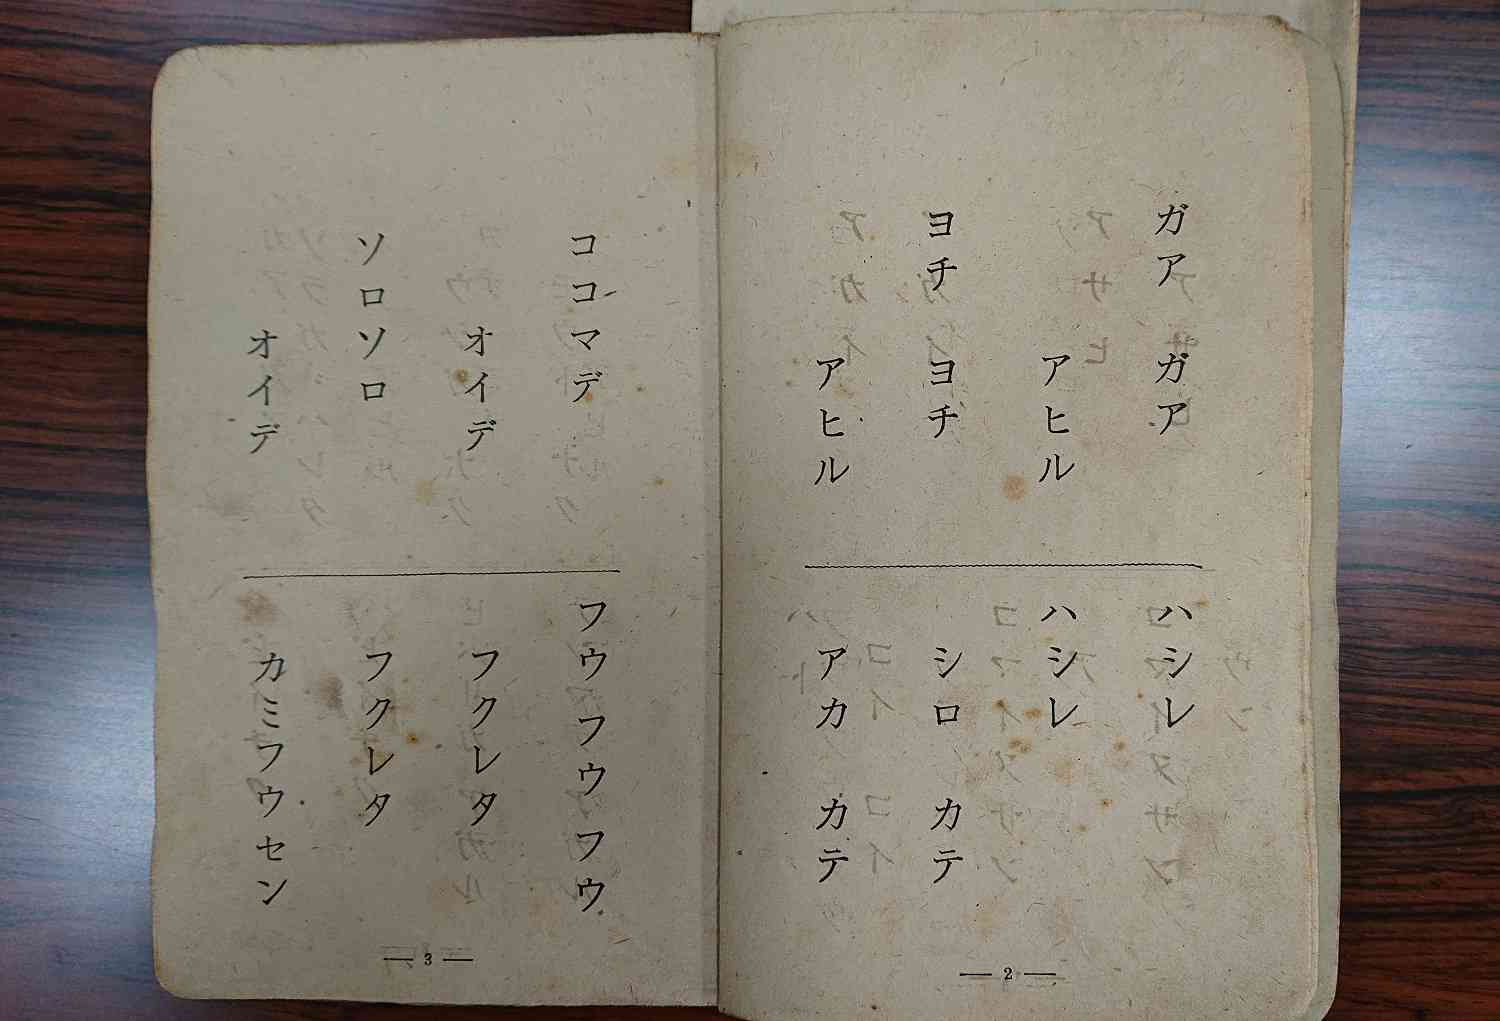 ガア ガア
アヒル
ヨチ ヨチ
アヒル
ハシレ
ハシレ
シロ カテ
アカ カテ
— 2 —
ココマデ
オイデ
ソロソロ
オイデ
フウフウフウ
フクレタ
フクレタ
カミフウセン
— 3 —